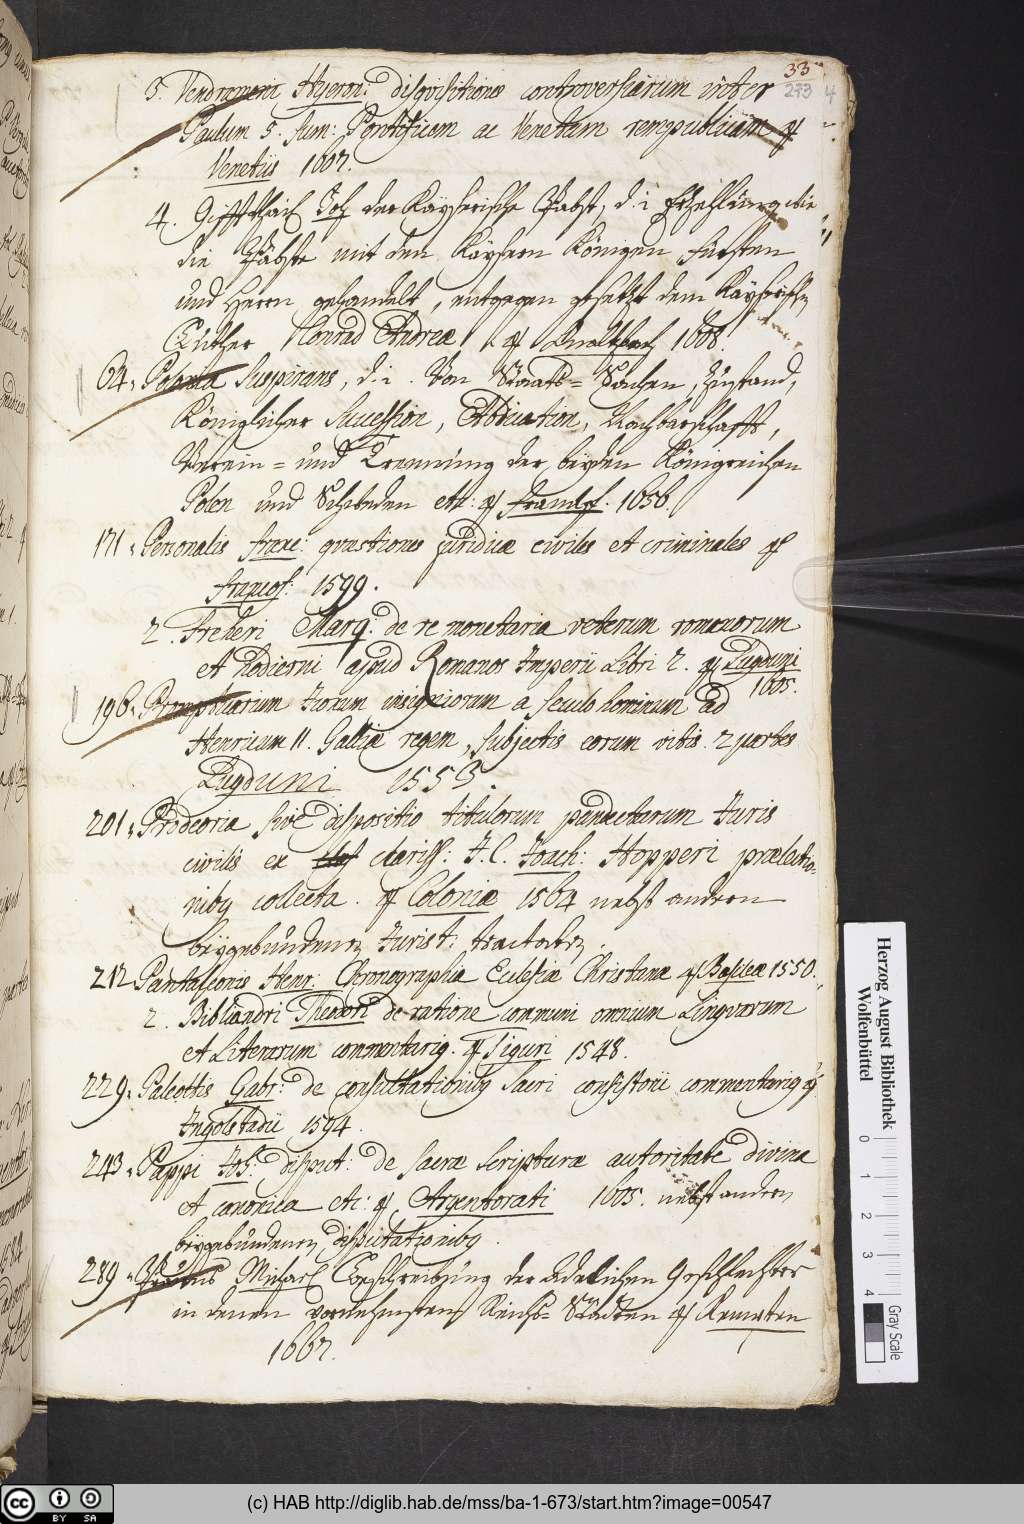 33
273
3. Vendrameni Hyeron: disqvisitiones controversiarum inter
Paulum 5. Sum: Pontificem ac Venetam rempublicam
Venetiis 1607.
4. Joh der Kayserische Pabst, d. i Erzehlung wie
die Päbste mit den Kaysern Königen Fürsten
und Herrn gehandelt, entgegen gesetzt dem Kayserischen
Luther Conrad Andreæ 1608.
64. Polonia Suspirans, d. i. Von Staats= Sachen, Zustand,
Königlicher Succession, Abdication, Nachbarschafft,
Verein= und Trennung der beyden Königreichen
Polen und Schweden etc: Franckf. 1656.
171. Personalis Franc: qvæstiones juridicæ civiles et criminales
Francof: 1599.
2. Freheri Marq. de re monetaria veterum romanorum
et hodierni apud Romanos Imperii Libri 2. Lugduni
1605.
196. Promptuarium Iconum insigniorum a seculo hominum ad
Henricum II. Galliæ regem, subjectis eorum vitis. 2 partes
Lugduni 1553.
201. Prodeoria sive dispositio titulorum pandectarum Juris
civilis ex clariss: J. C. Joach: Hopperi prælectio-
nibq collecta. Coloniæ 1564 nebst andern
beygebundenen Jurist: tractaten.
212 Pantaleonis Henr: Chronographia Ecclesiæ Christianæ Basileæ 1550.
2. Bibliandri Theodori de ratione communi omnium Lingvarum
et Literarum commentariq. Tiguri 1548.
229. Paleottis Gabr: de consultationibq sacri consistorii commentariq
Ingolstadii 1594.
243. Pappi Joh: disput: de sacræ scripturæ autoritate divina
et canonica etc: Argentorati 1605. nebst andern
beygebundenen disputationibq.
289. Michael Beschreibung der Adelichen Geschlechter
in denen vornehmsten Reichs= Städten Kempten
1667.
Herzog August Bibliothek
Wolfenbüttel
0 1 2 3 4
Gray Scale
(c) HAB http://diglib.hab.de/mss/ba-1-673/start.htm?image=00547
cc BY SA